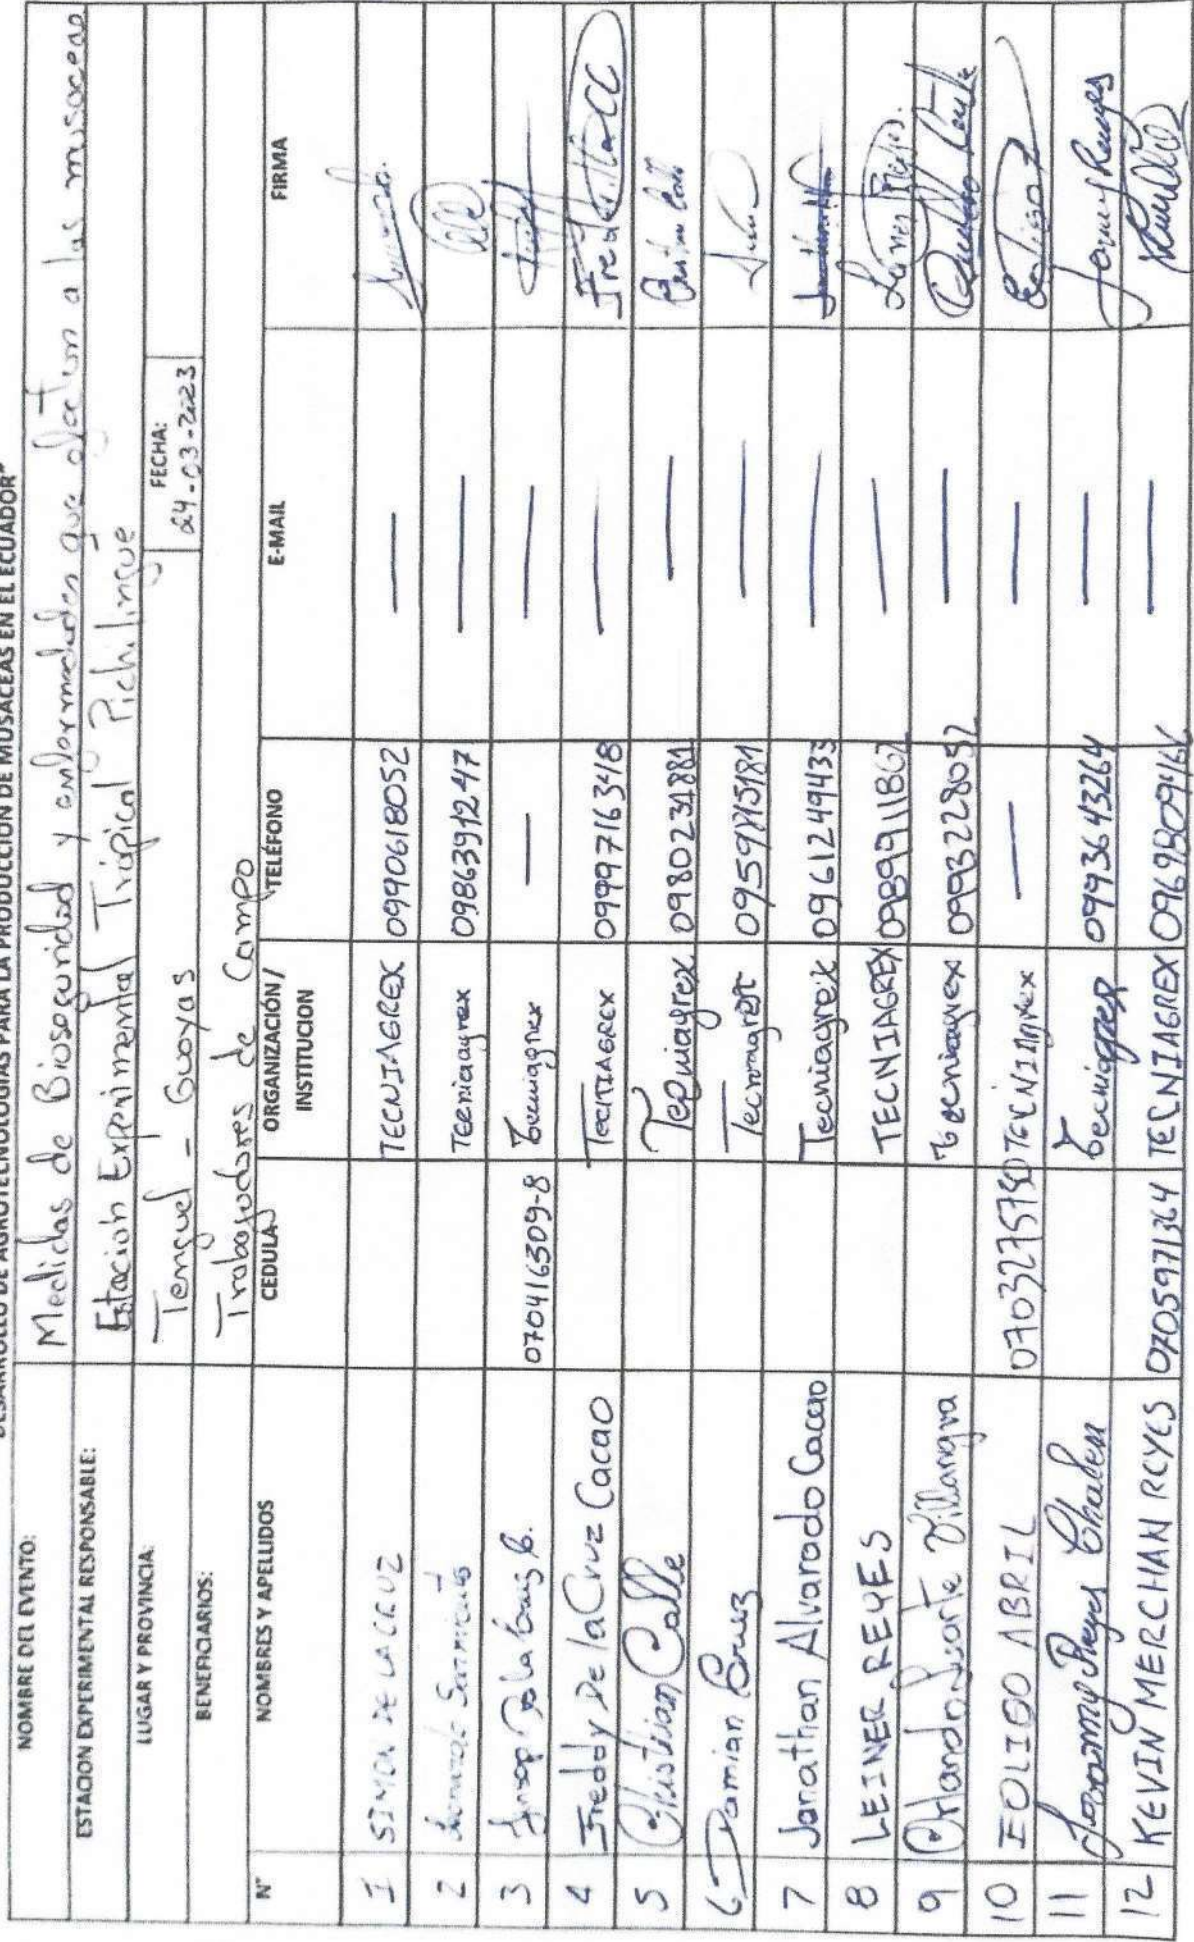 DESARROLLO DE AGROTECNOLOGÍAS PARA LA PRODUCCIÓN DE MUSÁCEAS EN EL ECUADOR"
NOMBRE DEL EVENTO: Medidas de Bioseguridad y enfermedades que afectan a las musaceas
ESTACION EXPERIMENTAL RESPONSABLE: Estación Experimental Tropical Pichilingue
LUGAR Y PROVINCIA: Tenguel - Guayas FECHA: 24-03-2023
BENEFICIARIOS: Trabajadores de Campo
N° NOMBRES Y APELLIDOS CEDULA ORGANIZACIÓN/ INSTITUCION TELÉFONO E-MAIL FIRMA
1 SIMON DE LA CRUZ TECNIAGREX 0990618052 —
2 Sarmiento Tecniagrex 0986391247 —
3 De la Cruz C. 070416309-8 Tecniagrex — —
4 Freddy De la Cruz Cacao TecniAGREX 0999716348 — Freddy
5 Christian Calle Tecniagrex 0980231881 — Cristian Calle
6 Damian Cruz Tecniagrex —
7 Jonathan Alvarado Cacao Tecniagrex 0961249433 —
8 LEINER REYES TECNIAGREX 0989911867 — Leiner Reyes.
9 Orlando Duarte Villangva tecniagrex 0993228052 —
10 EOLIGO ABRIL TECNIAgrex — —
11 Reyes Chalen tecniagrex 0993643264 — Reyes
12 KEVIN MERCHAN REYES 0705971364 TECNIAGREX —